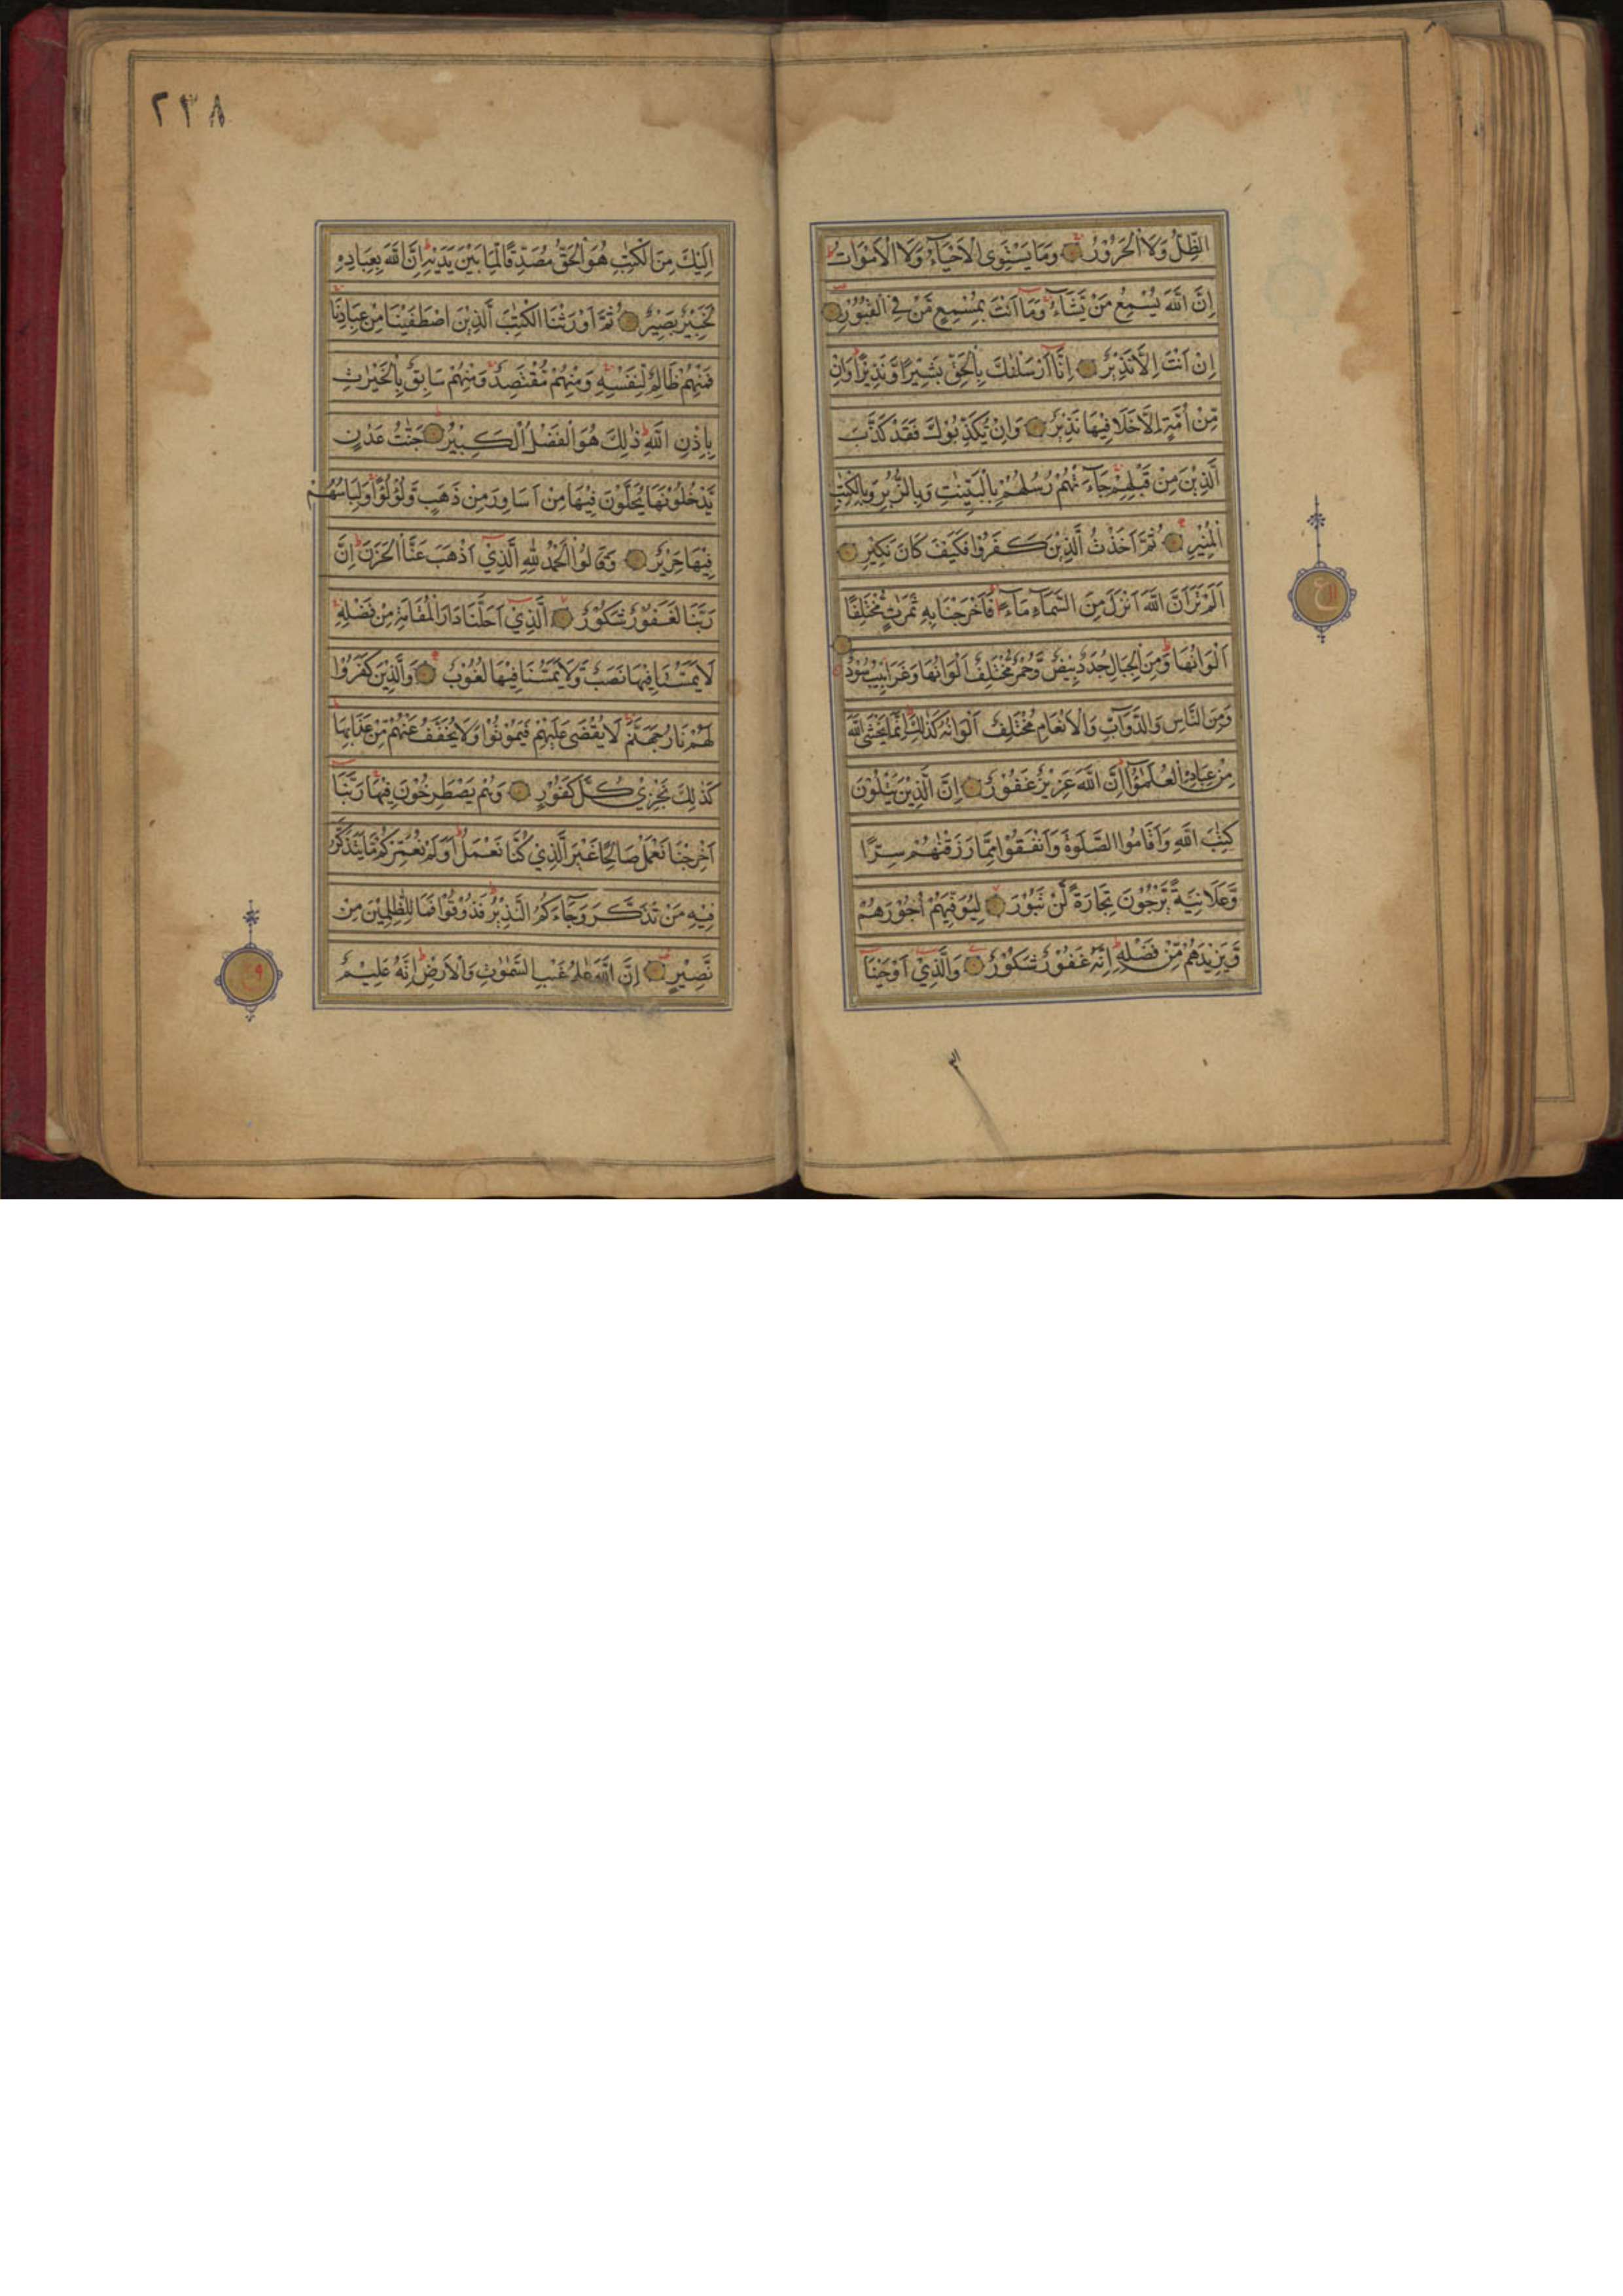 الظِّلُّ وَلَا الْحَرُوْرُ وَمَا يَسْتَوِي الْاَحْيَآءُ وَلَا الْاَمْوَاتُ
اِنَّ اللّٰهَ يُسْمِعُ مَنْ يَّشَآءُ وَمَآ اَنْتَ بِمُسْمِعٍ مَّنْ فِي الْقُبُوْرِ
اِنْ اَنْتَ اِلَّا نَذِيْرٌ اِنَّآ اَرْسَلْنٰكَ بِالْحَقِّ بَشِيْرًا وَّنَذِيْرًا وَاِنْ
مِّنْ اُمَّةٍ اِلَّا خَلَا فِيْهَا نَذِيْرٌ وَاِنْ يُّكَذِّبُوْكَ فَقَدْ كَذَّبَ
الَّذِيْنَ مِنْ قَبْلِهِمْ جَآءَتْهُمْ رُسُلُهُمْ بِالْبَيِّنٰتِ وَبِالزُّبُرِ وَبِالْكِتٰبِ
الْمُنِيْرِ ثُمَّ اَخَذْتُ الَّذِيْنَ كَفَرُوْا فَكَيْفَ كَانَ نَكِيْرِ
اَلَمْ تَرَ اَنَّ اللّٰهَ اَنْزَلَ مِنَ السَّمَآءِ مَآءً فَاَخْرَجْنَا بِهٖ ثَمَرٰتٍ مُّخْتَلِفًا
اَلْوَانُهَا وَمِنَ الْجِبَالِ جُدَدٌ بِيْضٌ وَّحُمْرٌ مُّخْتَلِفٌ اَلْوَانُهَا وَغَرَابِيْبُ سُوْدٌ
وَمِنَ النَّاسِ وَالدَّوَآبِّ وَالْاَنْعَامِ مُخْتَلِفٌ اَلْوَانُهٗ كَذٰلِكَ اِنَّمَا يَخْشَى اللّٰهَ
مِنْ عِبَادِهِ الْعُلَمٰٓؤُا اِنَّ اللّٰهَ عَزِيْزٌ غَفُوْرٌ اِنَّ الَّذِيْنَ يَتْلُوْنَ
كِتٰبَ اللّٰهِ وَاَقَامُوا الصَّلٰوةَ وَاَنْفَقُوْا مِمَّا رَزَقْنٰهُمْ سِرًّا
وَّعَلَانِيَةً يَّرْجُوْنَ تِجَارَةً لَّنْ تَبُوْرَ لِيُوَفِّيَهُمْ اُجُوْرَهُمْ
وَيَزِيْدَهُمْ مِّنْ فَضْلِهٖ اِنَّهٗ غَفُوْرٌ شَكُوْرٌ وَالَّذِيْٓ اَوْحَيْنَآ
ع
٢٣٨
اِلَيْكَ مِنَ الْكِتٰبِ هُوَ الْحَقُّ مُصَدِّقًا لِّمَا بَيْنَ يَدَيْهِ اِنَّ اللّٰهَ بِعِبَادِهٖ
لَخَبِيْرٌ بَصِيْرٌ ثُمَّ اَوْرَثْنَا الْكِتٰبَ الَّذِيْنَ اصْطَفَيْنَا مِنْ عِبَادِنَا
فَمِنْهُمْ ظَالِمٌ لِّنَفْسِهٖ وَمِنْهُمْ مُّقْتَصِدٌ وَمِنْهُمْ سَابِقٌ بِالْخَيْرٰتِ
بِاِذْنِ اللّٰهِ ذٰلِكَ هُوَ الْفَضْلُ الْكَبِيْرُ جَنّٰتُ عَدْنٍ
يَّدْخُلُوْنَهَا يُحَلَّوْنَ فِيْهَا مِنْ اَسَاوِرَ مِنْ ذَهَبٍ وَّلُؤْلُؤًا وَلِبَاسُهُمْ
فِيْهَا حَرِيْرٌ وَقَالُوا الْحَمْدُ لِلّٰهِ الَّذِيْٓ اَذْهَبَ عَنَّا الْحَزَنَ اِنَّ
رَبَّنَا لَغَفُوْرٌ شَكُوْرٌ الَّذِيْٓ اَحَلَّنَا دَارَ الْمُقَامَةِ مِنْ فَضْلِهٖ
لَا يَمَسُّنَا فِيْهَا نَصَبٌ وَّلَا يَمَسُّنَا فِيْهَا لُغُوْبٌ وَالَّذِيْنَ كَفَرُوْا
لَهُمْ نَارُ جَهَنَّمَ لَا يُقْضٰى عَلَيْهِمْ فَيَمُوْتُوْا وَلَا يُخَفَّفُ عَنْهُمْ مِّنْ عَذَابِهَا
كَذٰلِكَ نَجْزِيْ كُلَّ كَفُوْرٍ وَهُمْ يَصْطَرِخُوْنَ فِيْهَا رَبَّنَآ
اَخْرِجْنَا نَعْمَلْ صَالِحًا غَيْرَ الَّذِيْ كُنَّا نَعْمَلُ اَوَلَمْ نُعَمِّرْكُمْ مَّا يَتَذَكَّرُ
فِيْهِ مَنْ تَذَكَّرَ وَجَآءَكُمُ النَّذِيْرُ فَذُوْقُوْا فَمَا لِلظّٰلِمِيْنَ مِنْ
نَّصِيْرٍ اِنَّ اللّٰهَ عٰلِمُ غَيْبِ السَّمٰوٰتِ وَالْاَرْضِ اِنَّهٗ عَلِيْمٌ
ع